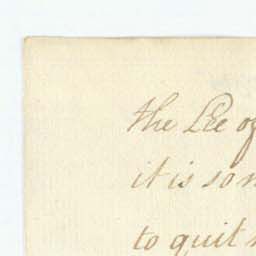 the Lee of
it is so
to quit